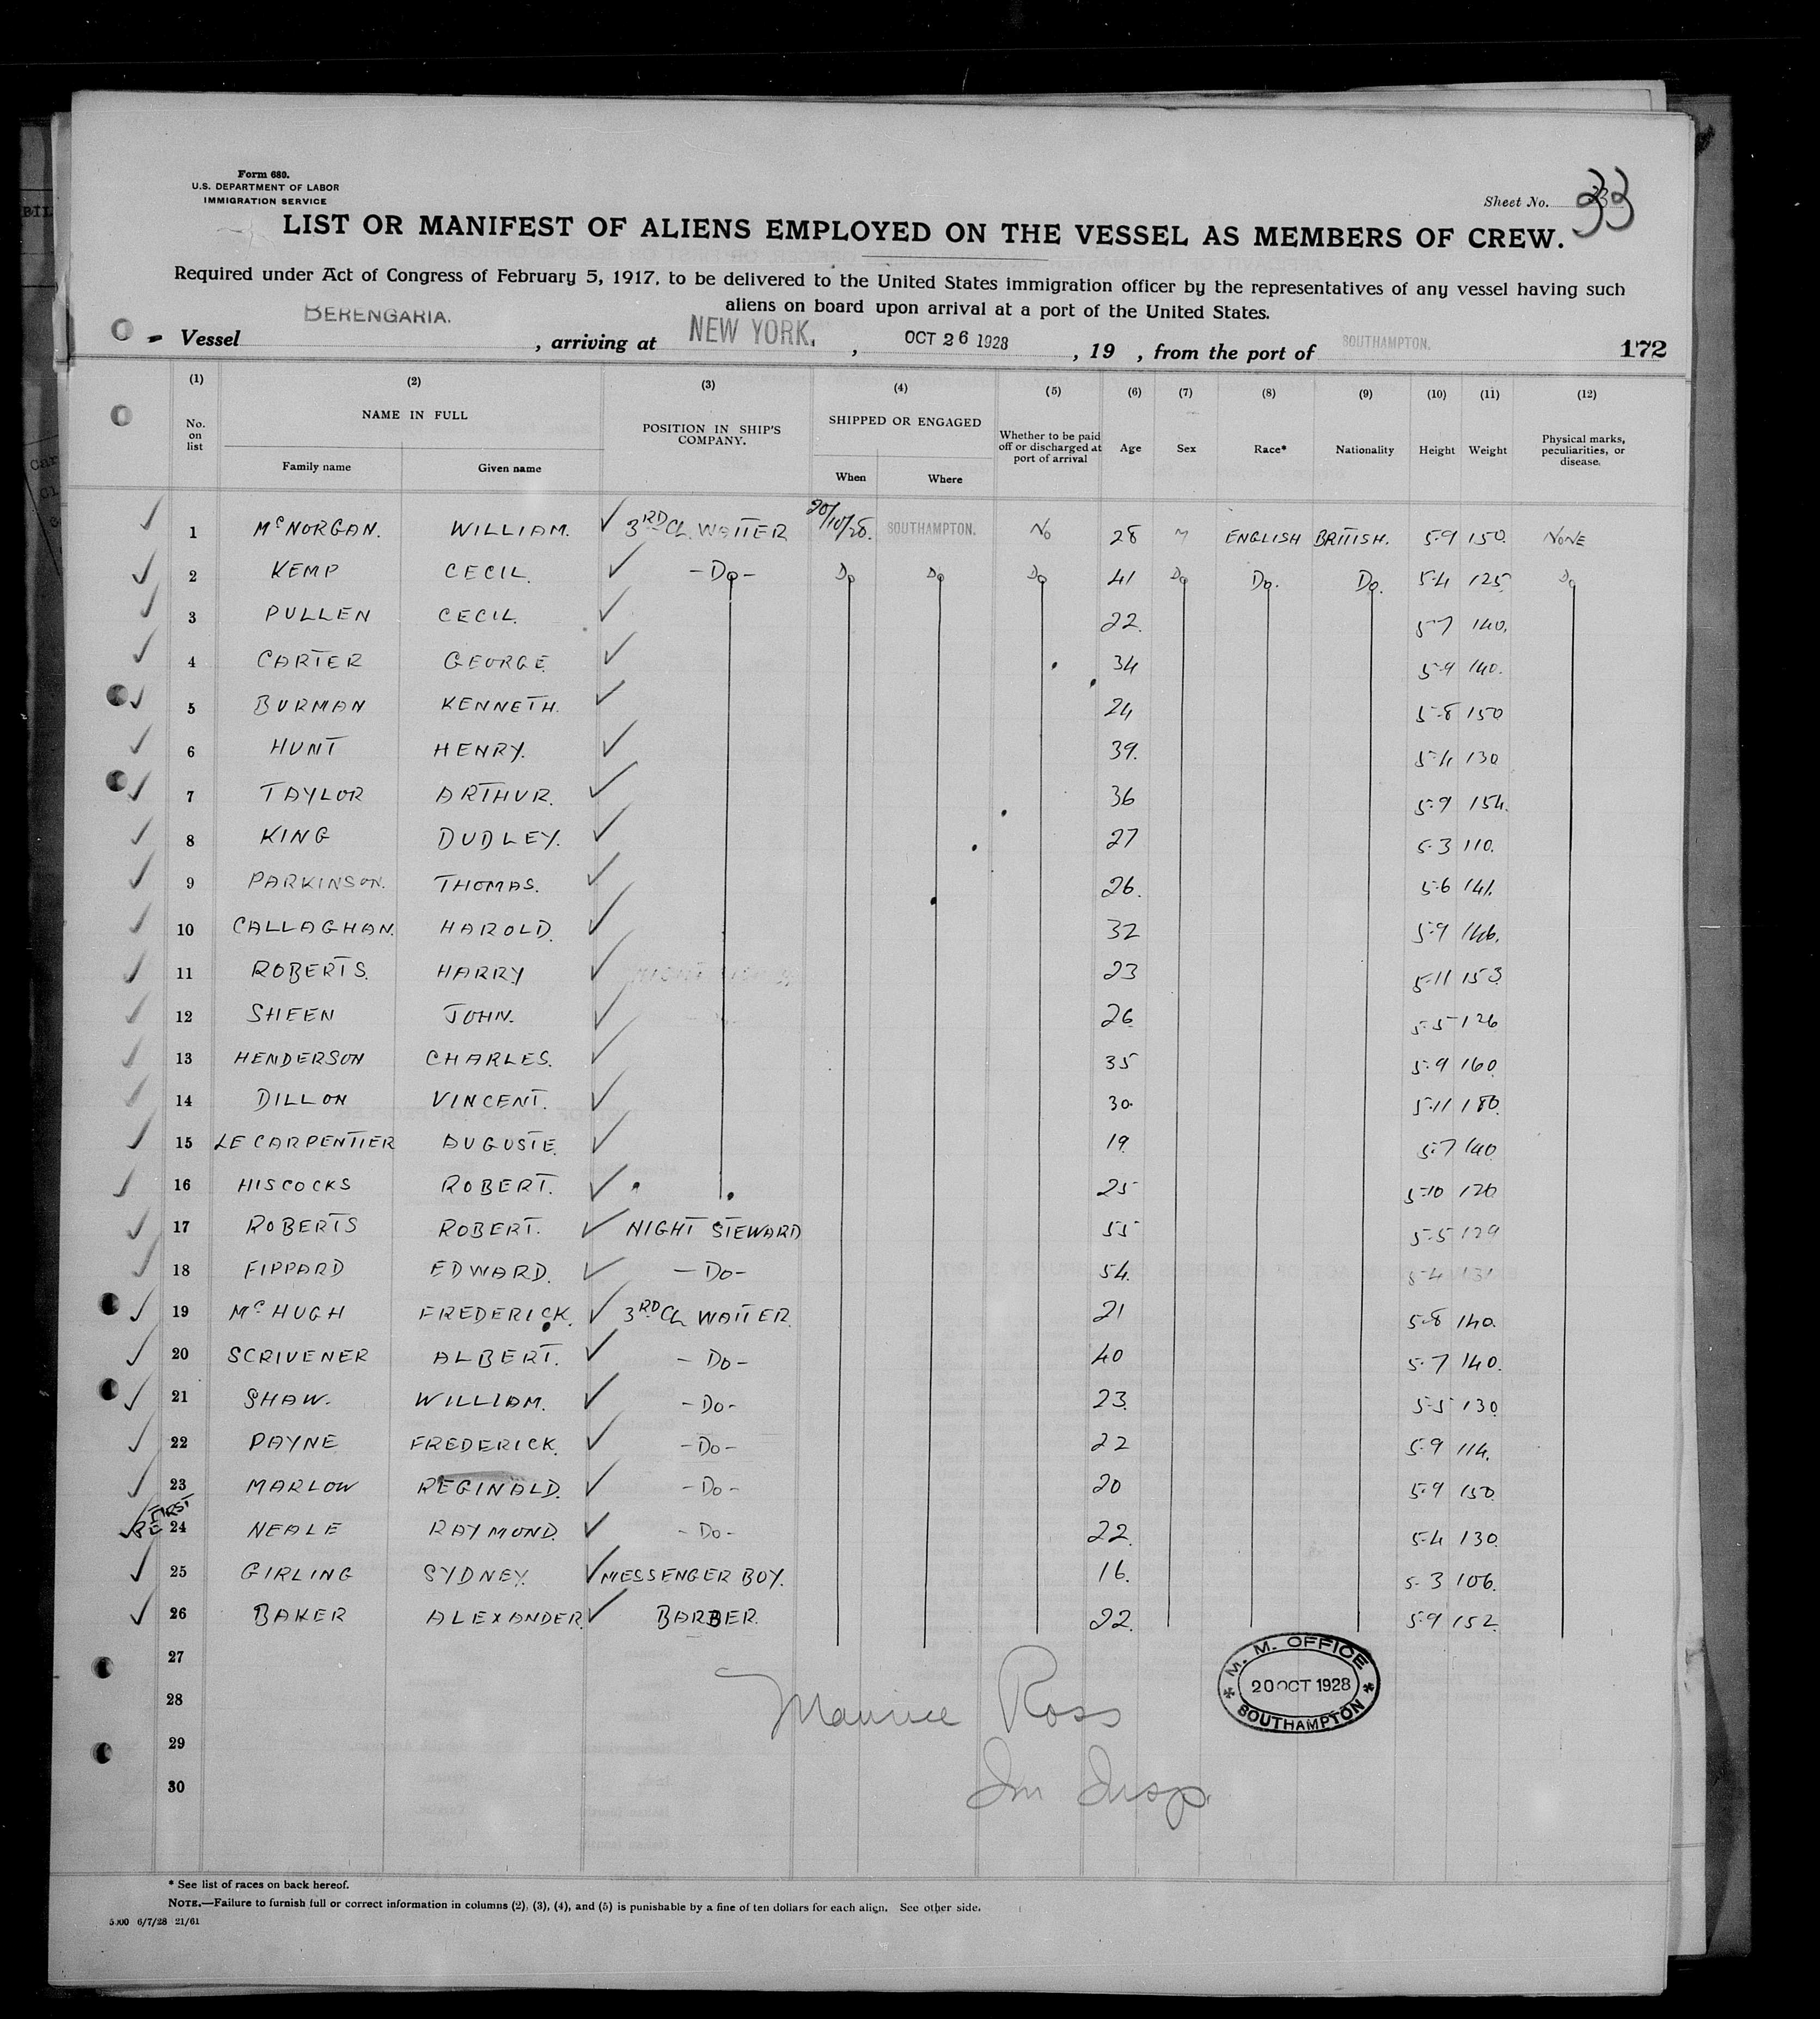 Form 680.
U.S. DEPARTMENT OF LABOR
IMMIGRATION SERVICE
Sheet No. 33
LIST OR MANIFEST OF ALIENS EMPLOYED ON THE VESSEL AS MEMBERS OF CREW.
Required under Act of Congress of February 5, 1917, to be delivered to the United States immigration officer by the representatives of any vessel having such
aliens on board upon arrival at a port of the United States.
Vessel BERENGARIA. , arriving at NEW YORK. , OCT 26 1928 , 19 , from the port of SOUTHAMPTON. 172
(1) (2) (3) (4) (5) (6) (7) (8) (9) (10) (11) (12)
No. on list NAME IN FULL POSITION IN SHIP'S COMPANY. SHIPPED OR ENGAGED Whether to be paid off or discharged at port of arrival Age Sex Race* Nationality Height Weight Physical marks, peculiarities, or disease.
Family name Given name When Where
1 McNORGAN. WILLIAM. 3RD CL. WAITER 20/10/28. SOUTHAMPTON. No 28 M ENGLISH BRITISH. 5-9 150. NONE
2 KEMP CECIL. -Do- Do Do Do 41 Do Do. Do. 5-4 125 Do
3 PULLEN CECIL. 22. 5-7 140.
4 CARTER GEORGE. 34 5-9 140.
5 BURMAN KENNETH. 24 5-8 150
6 HUNT HENRY. 39. 5-4 130
7 TAYLOR ARTHUR. 36 5-9 154.
8 KING DUDLEY. 27 5-3 110.
9 PARKINSON. THOMAS. 26. 5-6 141.
10 CALLAGHAN. HAROLD. 32 5-9 146.
11 ROBERTS. HARRY 23 5-11 153
12 SHEEN JOHN. 26 5-5 126
13 HENDERSON CHARLES. 35 5-9 160.
14 DILLON VINCENT. 30. 5-11 180.
15 LE CARPENTIER AUGUSTE. 19. 5-7 140
16 HISCOCKS ROBERT. 25 5-10 120
17 ROBERTS ROBERT. NIGHT STEWARD 55 5-5 129
18 FIPPARD EDWARD. -Do- 54. 5-4 131
19 McHUGH FREDERICK. 3RD CL WAITER. 21 5-8 140.
20 SCRIVENER ALBERT. -Do- 40 5-7 140.
21 SHAW. WILLIAM. -Do- 23. 5-5 130
22 PAYNE FREDERICK. -Do- 22 5-9 114.
23 MARLOW REGINALD. -Do- 20 5-9 150.
24 NEALE RAYMOND. -Do- 22. 5-4 130.
25 GIRLING SYDNEY. MESSENGER BOY. 16. 5-3 106.
26 BAKER ALEXANDER. BARBER. 22. 5-9 152
27
28
29
30
Maurice Ross
Im Insp.
M. M. OFFICE
20 OCT 1928
SOUTHAMPTON
* See list of races on back hereof.
NOTE.—Failure to furnish full or correct information in columns (2), (3), (4), and (5) is punishable by a fine of ten dollars for each alien. See other side.
5000 6/7/28 21/61